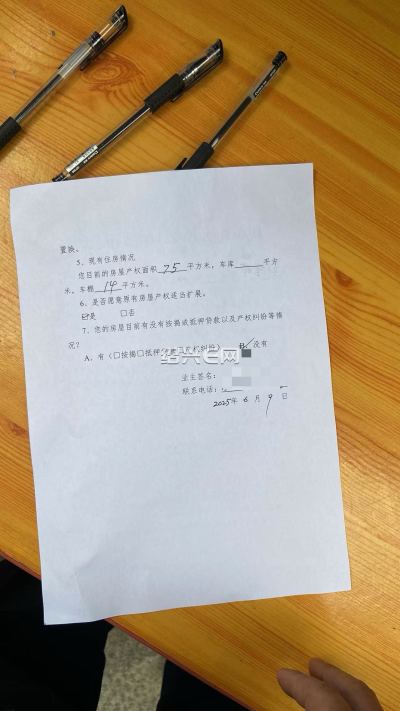 置换、
5、现有住房情况
您目前的房屋产权面积 75 平方米，车库____平方
米，车棚 14 平方米。
6、是否愿意原有房屋产权适当扩展。
☑是 □否
7、您的房屋目前有没有按揭或抵押贷款以及产权纠纷等情
况？
A、有（□按揭□抵押 产权纠纷） B 没有
业主签名：
联系电话：
2025年 6 月 9 日
绍兴E网